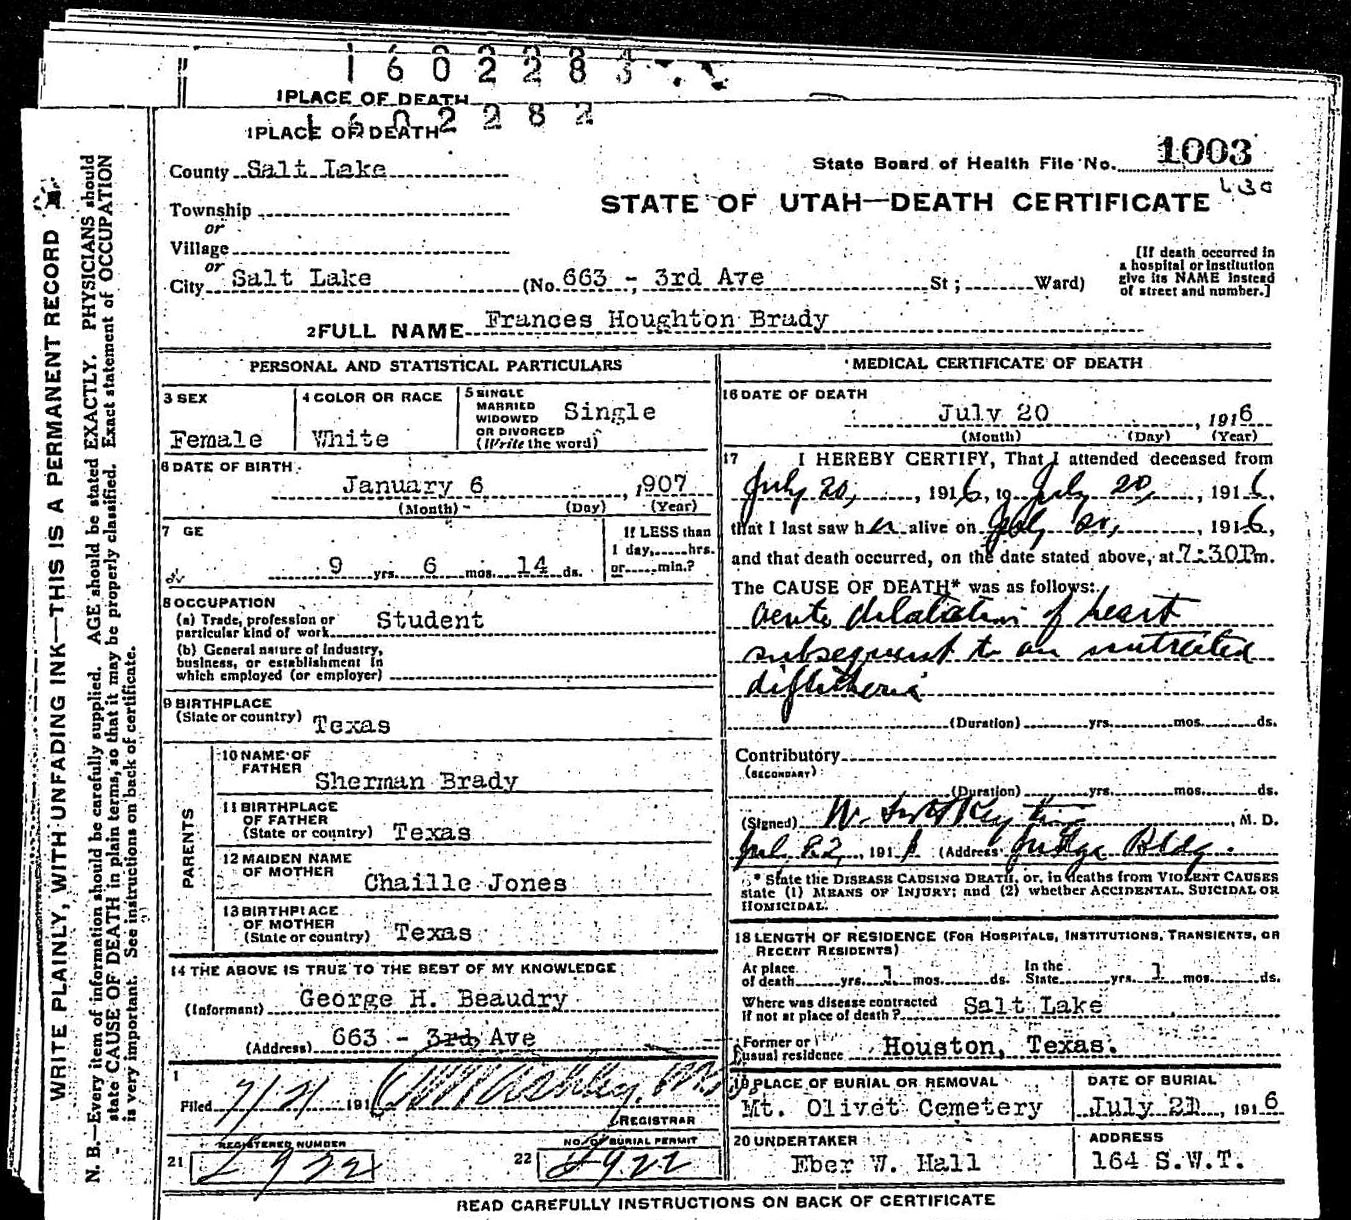 1 6 0 2 2 8 3
1 PLACE OF DEATH
1 6 0 2 2 8 2
1 PLACE OF DEATH
State Board of Health File No. 1003
County Salt Lake
STATE OF UTAH—DEATH CERTIFICATE
Township
or
Village
or
City Salt Lake (No. 663 - 3rd Ave St ; Ward)
[If death occurred in
a hospital or institution
give its NAME instead
of street and number.]
2 FULL NAME Frances Houghton Brady
PERSONAL AND STATISTICAL PARTICULARS
3 SEX
Female
4 COLOR OR RACE
White
5 SINGLE
MARRIED
WIDOWED
OR DIVORCED
(Write the word)
Single
6 DATE OF BIRTH
January 6, 1907
(Month) (Day) (Year)
7 GE
9 yrs. 6 mos. 14 ds.
If LESS than
1 day, hrs.
or min.?
8 OCCUPATION
(a) Trade, profession or
particular kind of work Student
(b) General nature of industry,
business, or establishment in
which employed (or employer)
9 BIRTHPLACE
(State or country) Texas
PARENTS
10 NAME OF
FATHER
Sherman Brady
11 BIRTHPLACE
OF FATHER
(State or country) Texas
12 MAIDEN NAME
OF MOTHER
Chaille Jones
13 BIRTHPLACE
OF MOTHER
(State or country) Texas
14 THE ABOVE IS TRUE TO THE BEST OF MY KNOWLEDGE
(Informant) George H. Beaudry
(Address) 663 - 3rd Ave
Filed 7/21 191
REGISTRAR
REGISTERED NUMBER
21
NO. OF BURIAL PERMIT
22
MEDICAL CERTIFICATE OF DEATH
16 DATE OF DEATH
July 20, 1916
(Month) (Day) (Year)
17 I HEREBY CERTIFY, That I attended deceased from
July 20, 1916, to July 20, 1916,
that I last saw her alive on July 20, 1916,
and that death occurred, on the date stated above, at 7:30P m.
The CAUSE OF DEATH* was as follows:
acute dilatation of heart
subsequent to an untreated
diphtheria
(Duration) yrs. mos. ds.
Contributory
(SECONDARY)
(Duration) yrs. mos. ds.
(Signed) W. , M. D.
191 (Address) Judge Bldg.
* State the DISEASE CAUSING DEATH, or, in deaths from VIOLENT CAUSES
state (1) MEANS OF INJURY; and (2) whether ACCIDENTAL, SUICIDAL OR
HOMICIDAL.
18 LENGTH OF RESIDENCE (FOR HOSPITALS, INSTITUTIONS, TRANSIENTS, OR
RECENT RESIDENTS)
At place
of death yrs. 1 mos. ds. In the
State yrs. 1 mos. ds.
Where was disease contracted
If not at place of death? Salt Lake
Former or
usual residence Houston, Texas.
19 PLACE OF BURIAL OR REMOVAL
Mt. Olivet Cemetery
DATE OF BURIAL
July 21, 1916
20 UNDERTAKER
Eber W. Hall
ADDRESS
164 S.W.T.
READ CAREFULLY INSTRUCTIONS ON BACK OF CERTIFICATE
WRITE PLAINLY, WITH UNFADING INK—THIS IS A PERMANENT RECORD
N. B.—Every item of information should be carefully supplied. AGE should be stated EXACTLY. PHYSICIANS should
state CAUSE OF DEATH in plain terms, so that it may be properly classified. Exact statement of OCCUPATION
is very important. See instructions on back of certificate.